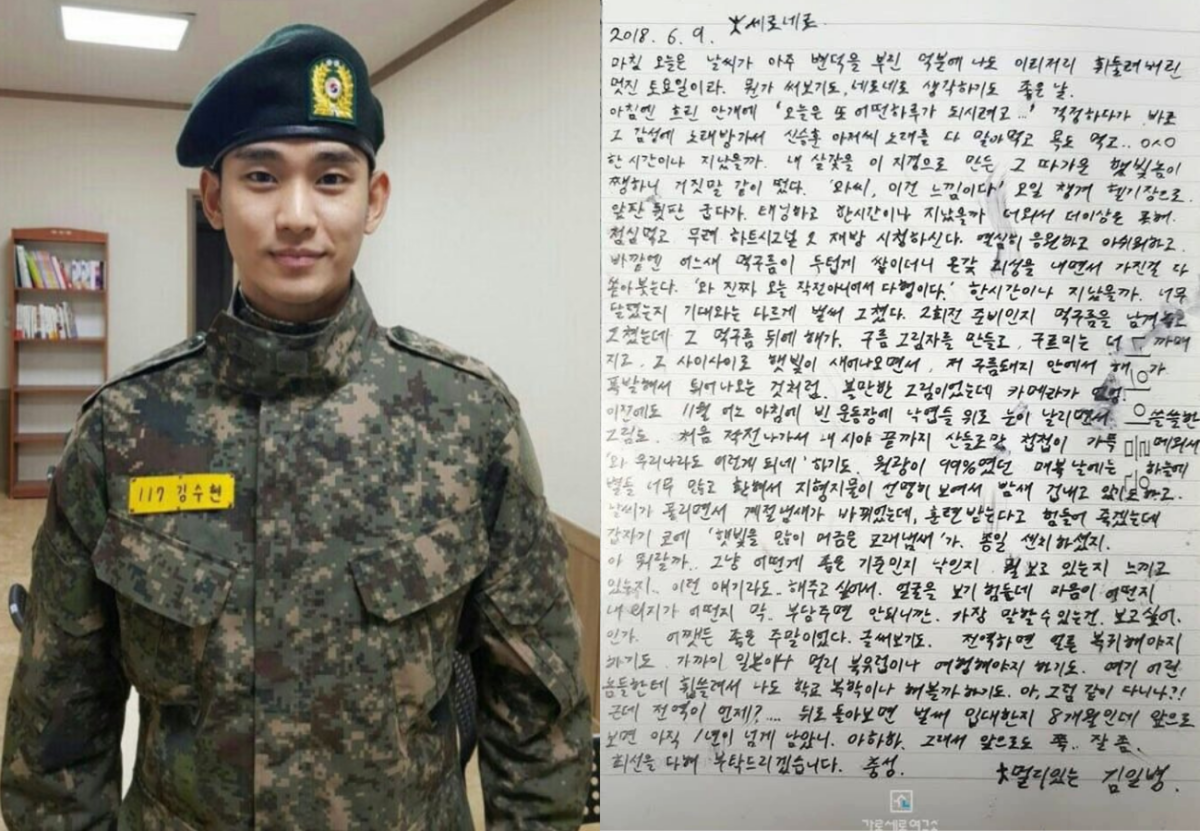 117 김수현
2018. 6. 9. 太세로네로
마침 오늘은 날씨가 아주 변덕을 부린 덕분에 나도 이리저리 휘둘려버린
멋진 토요일이라. 뭔가 써보기도, 세로네로 생각하기도 좋은 날.
아침엔 흐린 안개에 '오늘은 또 어떤하루가 되시려고...' 걱정하다가 바로
그 감성에 노래방가서 신승훈 아저씨 노래를 다 말아먹고 욕도 먹고.. ㅇㅅㅇ
한시간이나 지났을까. 내 살갗을 이 지경으로 만든 그 따가운 햇빛놈이
쨍하니 거짓말 같이 떴다. '와씨, 이건 느낌이다' 오일 챙겨 헬기장으로.
앞판 뒷판 굽다가. 태닝하고 한시간이나 지났을까 더워서 더이상은 못해.
점심먹고 무려 하트시그널 2 재방 시청하신다. 열심히 응원하고 아쉬워하고.
바깥엔 어느새 먹구름이 두텁게 쌓이더니 온갖 괴성을 내면서 가진걸 다
쏟아붓는다. '와 진짜 오늘 작전아니어서 다행이다.' 한시간이나 지났을까. 너무
달렸는지 기대와는 다르게 벌써 그쳤다. 2회전 준비인지 먹구름을 남겨놓고
그쳤는데 그 먹구름 뒤에 해가. 구름 그림자를 만들고, 구르미는 더 까매
지고, 그 사이사이로 햇빛이 새어나오면서, 저 구름돼지 안에서 해가
폭발해서 튀어나오는 것처럼. 볼만한 그림이었는데 카메라가
이전에도 11월 어느 아침에 빈 운동장에 낙엽들 위로 눈이 날리면서 쓸쓸한
그림도. 처음 작전나가서 내 시야 끝까지 산들로만 첩첩이 가득 메워서
'와 우리나라도 이렇게 되네' 하기도. 월광이 99%였던 매복날에는 하늘에
별들 너무 많고 환해서 지형지물이 선명히 보여서 밤새 겁내고 있기도하고.
날씨가 풀리면서 계절냄새가 바뀌었는데, 훈련받는다고 힘들어 죽겠는데
갑자기 코에 '햇빛을 많이 머금은 모래냄새'가. 종일 센치하셨지.
아 뭐랄까.. 그냥 어떤게 좋은 기준인지 낙인지 뭘 보고 있는지 느끼고
있는지.. 이런 얘기라도.. 해주고 싶어서. 얼굴을 보기 힘든데 마음이 어떤지
내 의지가 어떤지 막.. 부담주면 안되니깐. 가장 말할 수 있는건. 보고싶어.
인가. 어쨋든 좋은 주말이었다. 글써보기도. 전역하면 얼른 복귀해야지
하기도. 가까이 일본이나 멀리 북유럽이나 여행해야지 하기도. 여기 어린
놈들한테 휩쓸려서 나도 학교 복학이나 해볼까 하기도. 아, 그럼 같이 다니나?!
근데 전역이 언제?.... 뒤로 돌아보면 벌써 입대한지 8개월인데 앞으로
보면 아직 1년이 넘게 남았니. 아하하. 그래서 앞으로도 쭉.. 잘 좀.
최선을 다해 부탁드리겠습니다. 충성.
太멀리있는 김일병.
가로세로연구소